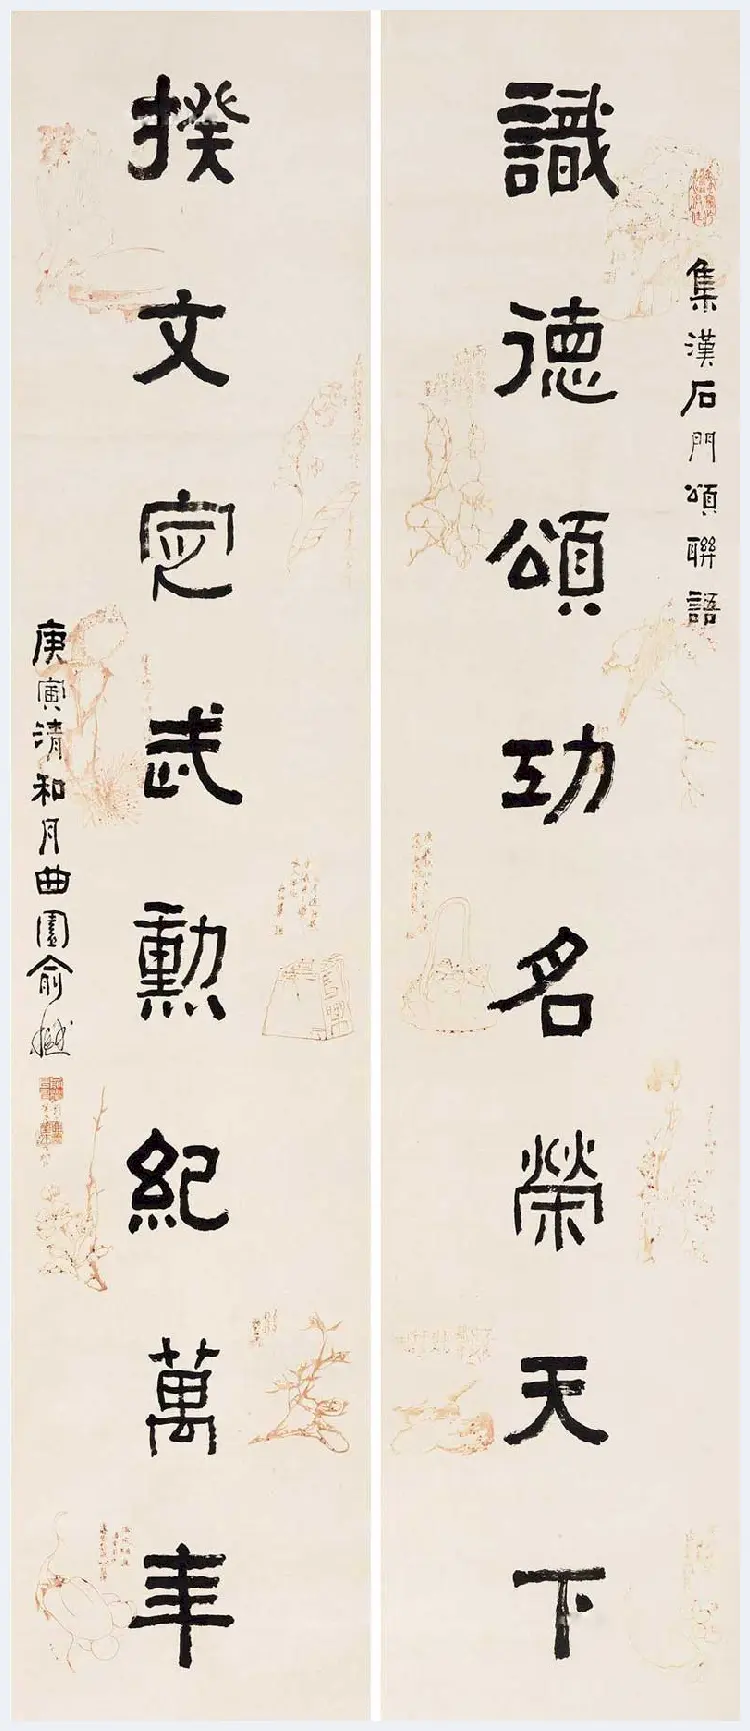 集漢石門頌聯語
識德頌功名榮天下
揆文定武勲紀萬年
庚寅清和月曲園俞樾